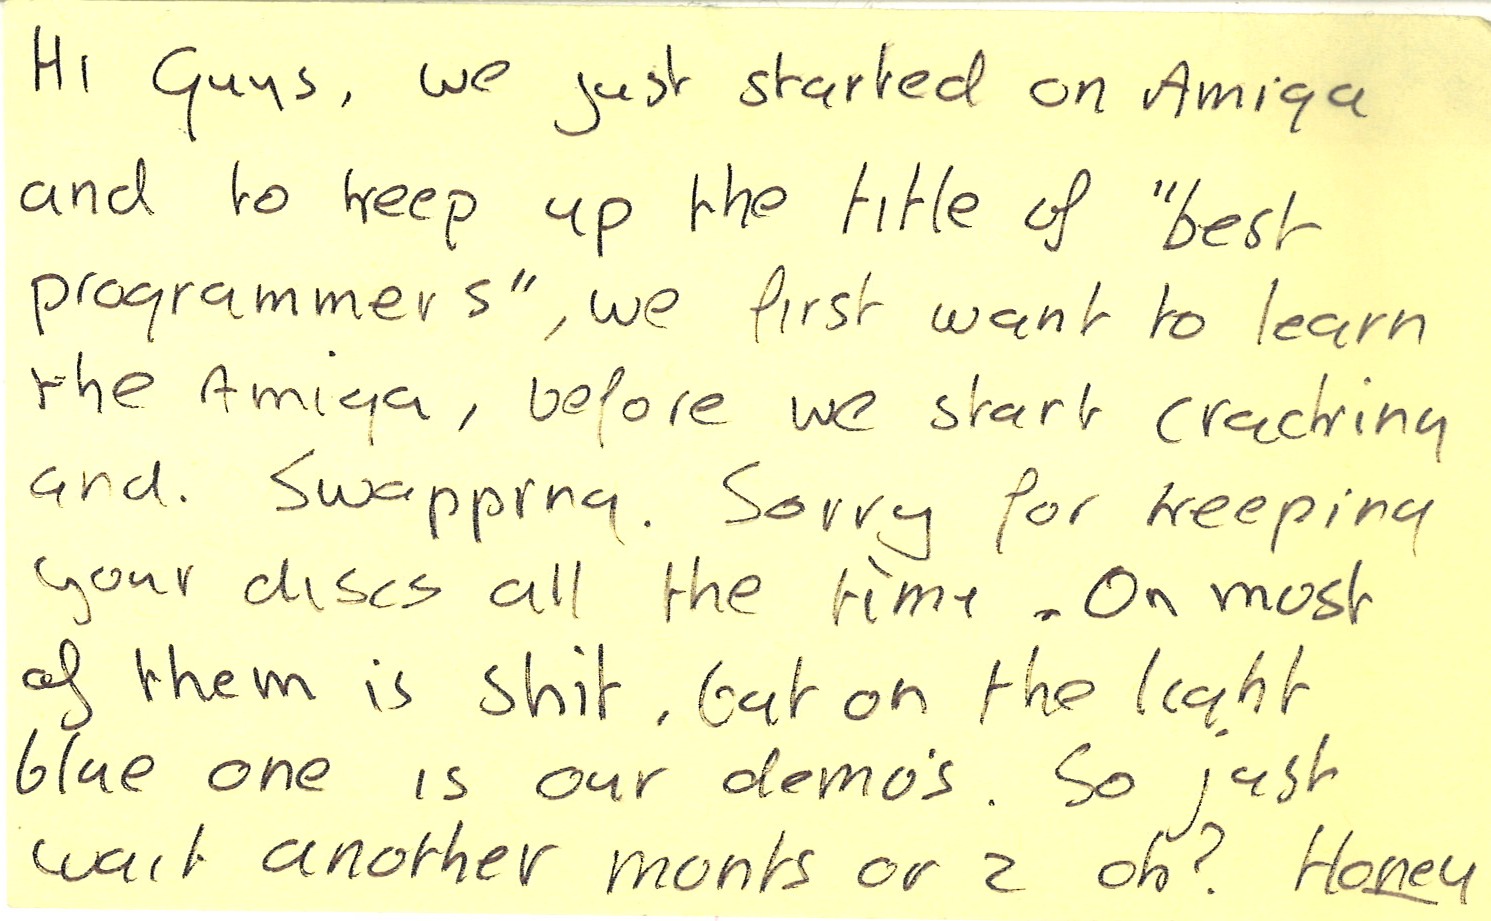 Hi Guys, we just started on Amiga
and to keep up the title of "best
programmers", we first want to learn
the Amiga, before we start cracking
and. Swapping. Sorry for keeping
your discs all the time. On most
of them is shit, but on the light
blue one is our demo's. So just
wait another monts or 2 ok? Honey